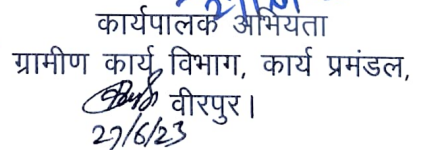 कार्यपालक अभियंता
ग्रामीण कार्य विभाग, कार्य प्रमंडल,
वीरपुर।
27/6/23